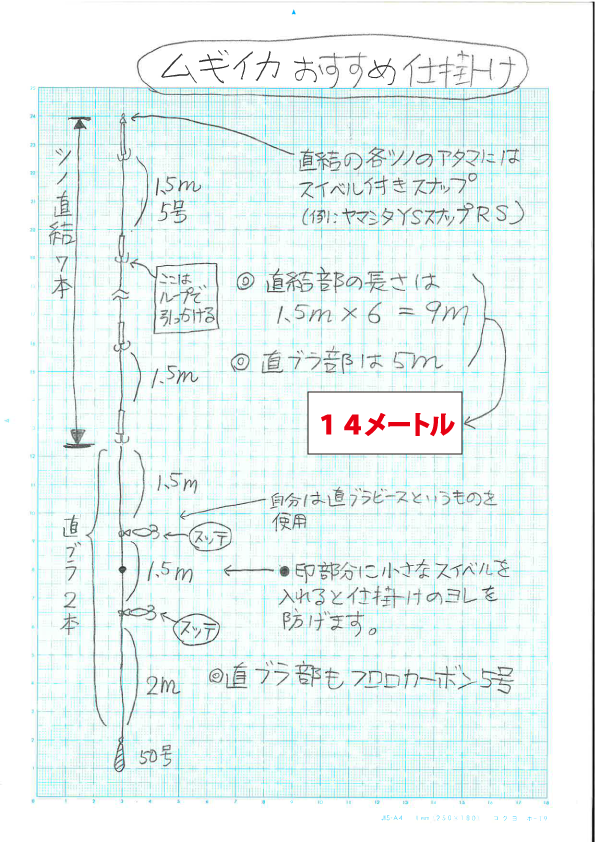 ムギイカ おすすめ仕掛け
直結の各ツノのアタマには
スイベル付きスナップ
(例:ヤマシタYSスナップRS)
ツノ直結7本
1.5m
5号
ここは
ループで
引っかける
◎ 直結部の長さは
1.5m × 6 = 9m
◎ 直ブラ部は5m
1.5m
14メートル
1.5m
自分は直ブラビースというものを
使用
スッテ
直ブラ2本
1.5m
●印部分に小さなスイベルを
入れると仕掛けのヨレを
防げます。
スッテ
2m
◎直ブラ部もフロロカーボン5号
50号